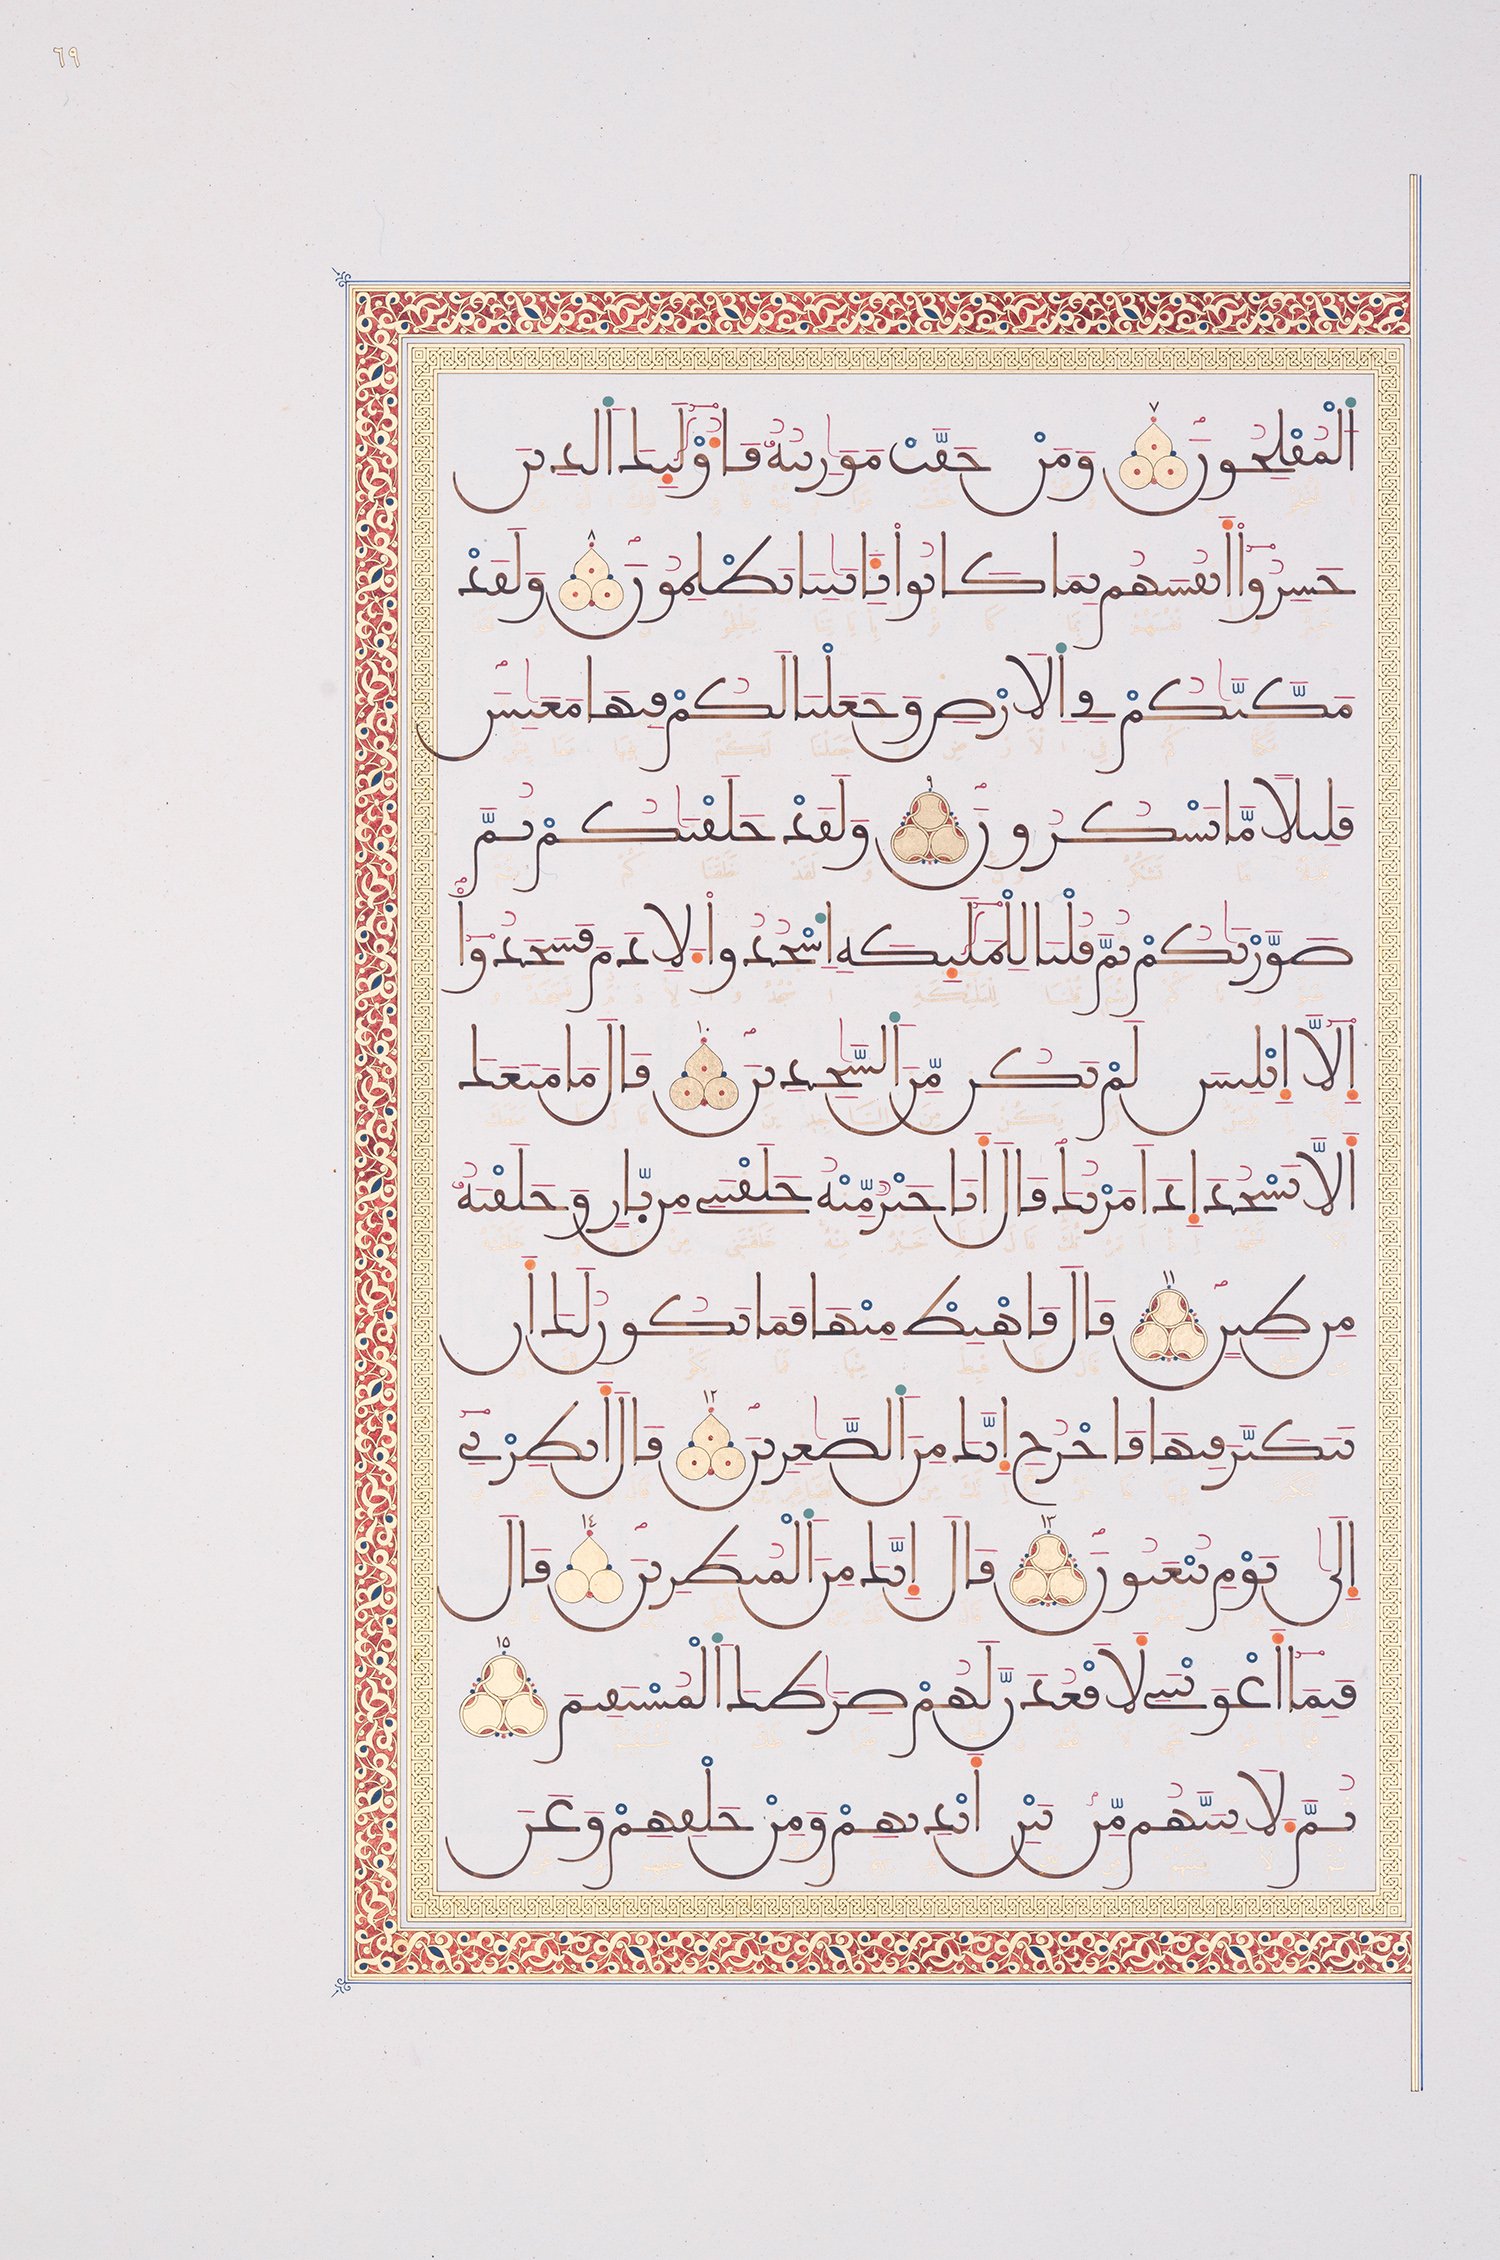 ٦٩
ٱلْمُفْلِحُونَ ٧ وَمَنْ خَفَّتْ مَوَٰزِينُهُۥ فَأُوْلَٰٓئِكَ ٱلَّذِينَ
خَسِرُوٓاْ أَنفُسَهُم بِمَا كَانُواْ بِـَٔايَٰتِنَا يَظْلِمُونَ ٨ وَلَقَدْ
مَكَّنَّٰكُمْ فِى ٱلْأَرْضِ وَجَعَلْنَا لَكُمْ فِيهَا مَعَٰيِشَ
قَلِيلًا مَّا تَشْكُرُونَ ٩ وَلَقَدْ خَلَقْنَٰكُمْ ثُمَّ
صَوَّرْنَٰكُمْ ثُمَّ قُلْنَا لِلْمَلَٰٓئِكَةِ ٱسْجُدُواْ لِـَٔادَمَ فَسَجَدُوٓاْ
إِلَّآ إِبْلِيسَ لَمْ يَكُن مِّنَ ٱلسَّٰجِدِينَ ١٠ قَالَ مَا مَنَعَكَ
أَلَّا تَسْجُدَ إِذْ أَمَرْتُكَ قَالَ أَنَا خَيْرٌ مِّنْهُ خَلَقْتَنِى مِن نَّارٍ وَخَلَقْتَهُۥ
مِن طِينٍ ١١ قَالَ فَٱهْبِطْ مِنْهَا فَمَا يَكُونُ لَكَ أَن
تَتَكَبَّرَ فِيهَا فَٱخْرُجْ إِنَّكَ مِنَ ٱلصَّٰغِرِينَ ١٢ قَالَ أَنظِرْنِىٓ
إِلَىٰ يَوْمِ يُبْعَثُونَ ١٣ قَالَ إِنَّكَ مِنَ ٱلْمُنظَرِينَ ١٤ قَالَ
فَبِمَآ أَغْوَيْتَنِى لَأَقْعُدَنَّ لَهُمْ صِرَٰطَكَ ٱلْمُسْتَقِيمَ ١٥
ثُمَّ لَأٓتِيَنَّهُم مِّنۢ بَيْنِ أَيْدِيهِمْ وَمِنْ خَلْفِهِمْ وَعَنْ